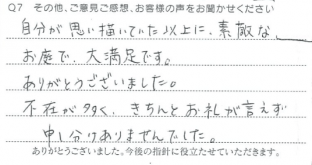 Q7 その他、ご意見ご感想、お客様の声をお聞かせください
自分が思い描いていた以上に、素敵な
お庭で、大満足です。
ありがとうございました。
不在が多く、きちんとお礼が言えず
申し分けありませんでした。
ありがとうございました。今後の指針に役立たせていただきます。